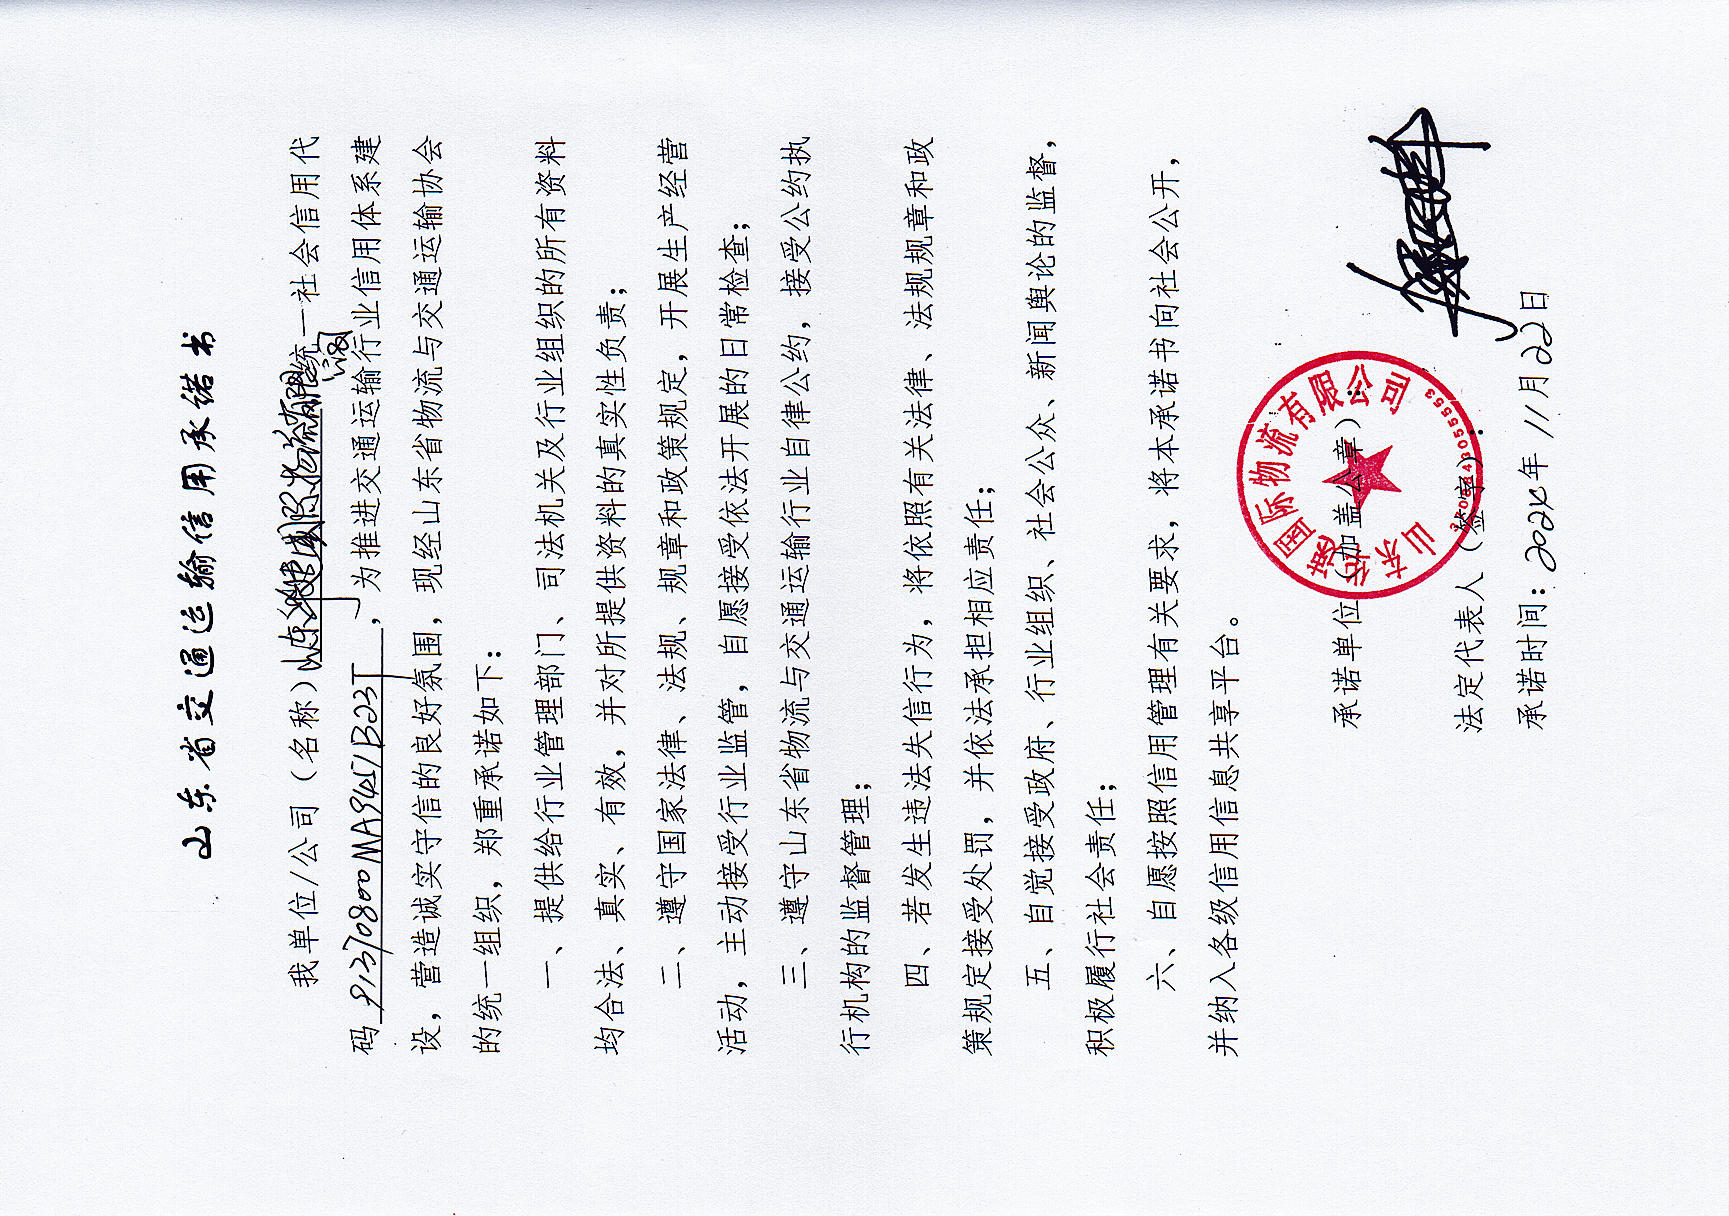 山东省交通运输信用承诺书
我单位/公司（名称）山东华速国际物流有限公司统一社会信用代
码 91370800MA9451B23T ，为推进交通运输行业信用体系建
设，营造诚实守信的良好氛围，现经山东省物流与交通运输协会
的统一组织，郑重承诺如下：
一、提供给行业管理部门、司法机关及行业组织的所有资料
均合法、真实、有效，并对所提供资料的真实性负责；
二、遵守国家法律、法规、规章和政策规定，开展生产经营
活动，主动接受行业监管，自愿接受依法开展的日常检查；
三、遵守山东省物流与交通运输行业自律公约，接受公约执
行机构的监督管理；
四、若发生违法失信行为，将依照有关法律、法规规章和政
策规定接受处罚，并依法承担相应责任；
五、自觉接受政府、行业组织、社会公众、新闻舆论的监督，
积极履行社会责任；
六、自愿按照信用管理有关要求，将本承诺书向社会公开，
并纳入各级信用信息共享平台。
山东华速国际物流有限公司
承诺单位（加盖公章）：
法定代表人（签字）：
承诺时间：2024年 11月22日